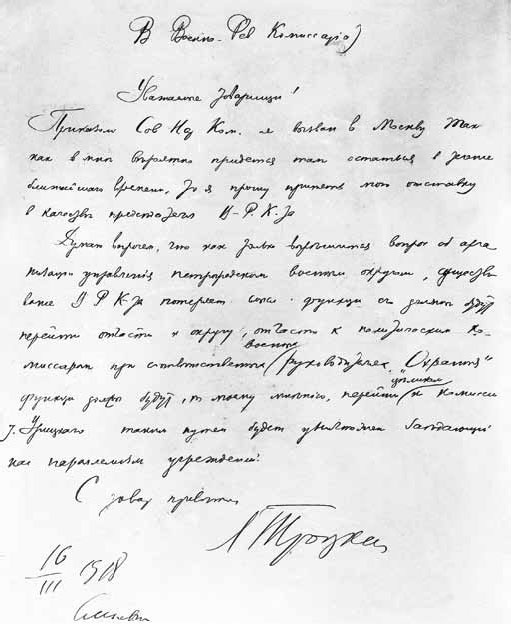 В Военно-Рев Комиссариат
Уважаемые товарищи!
Приказом Сов Нар Ком. я вызван в Москву Так
как мне вероятно придется там остаться в течение
ближайшего времени, то я прошу принять мою отставку
в качестве председателя В-Р.К-та
Думаю впрочем, что как только вопрос об орга
низации управления петроградским военным округом, существо
вание В Р К-та потеряет смысл. функции его должны будут
перейти отчасти к округу, отчасти к политическим ко-
военных
миссарам при руководителях. "Охранная"
целиком
функция должна будут, по моему мнению, перейти к комиссии
т. Урицкого таким путем будет
нас параллелизм учреждений.
С товар приветом
Л Троцкий
16
III 1918